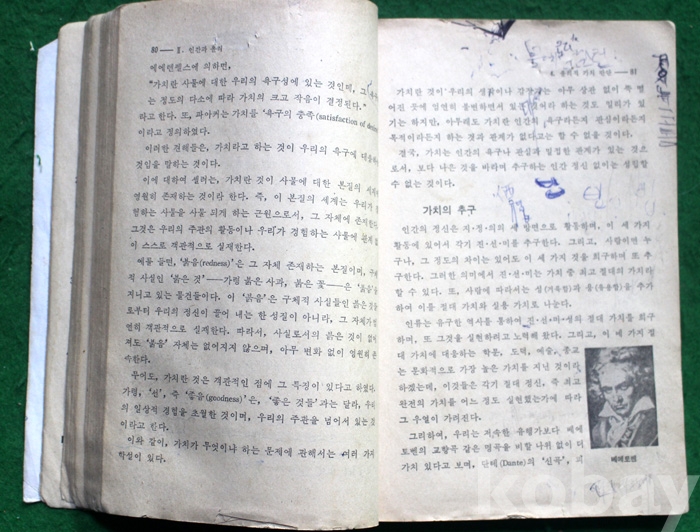 80 — Ⅱ. 인간과 윤리
에에렌펠스에 의하면,
"가치란 사물에 대한 우리의 욕구성에 있는 것인데, 그
는 정도의 다소에 따라 가치의 크고 작음이 결정된다."
라고 한다. 또, 파아커는 가치를 '욕구의 충족(satisfaction of
이라고 정의하였다.
이러한 견해들은, 가치라고 하는 것이 우리의 욕구에
것임을 말하는 것이다.
이에 대하여 셸러는, 가치란 것이 사물에 대한 본질의
영원히 존재하는 것이라 한다. 즉, 이 본질의 세계는 우리가
험하는 사물을 사물 되게 하는 근원으로서, 그 자체에
그것은 우리의 주관의 활동이나 우리가 경험하는 사물에
이 스스로 객관적으로 실재한다.
예를 들면, '붉음(redness)'은 그 자체 존재하는 본질이며,
적 사실인 '붉은 것'——가령 붉은 사과, 붉은 꽃——은 '붉음'을
지니고 있는 물건들이다. 이 '붉음'은 구체적 사실들인 붉은 것들
로부터 우리의 정신이 끌어 내는 한 성질이 아니라, 그 자체가
연히 객관적으로 실재한다. 따라서, 사실로서의 붉은 것이
져도 '붉음' 자체는 없어지지 않으며, 아무 변화 없이 영원히 존
속한다.
무어도, 가치란 것은 객관적인 점에 그 특징이 있다고 하였다.
가령, '선', 즉 '좋음(goodness)'은, '좋은 것들'과는 달라, 우리
의 일상적 경험을 초월한 것이며, 우리의 주관을 넘어서 있는 것
이라고 한다.
이와 같이, 가치가 무엇이냐 하는 문제에 관해서는 여러 가지
학설이 있다.
81
가치란 것이 우리의 생활이나 감정과는 아주 상관 없이 뚝 떨
어진 곳에 엄연히 출연하면서 있는 것이라 하는 것도 일리가 있
기는 하지만, 아무래도 가치란 인간의 욕구라든지 관심이라든지
목적이라든지 하는 것과 관계가 없다고는 할 수 없을 것이다.
결국, 가치는 인간의 욕구나 관심과 밀접한 관계가 있는 것으
로서, 보다 나은 것을 바라며 추구하는 인간 정신 없이는 성립할
수 없는 것이다.
가치의 추구
인간의 정신은 지·정·의의 세 방면으로 활동하며, 이 세 가지
활동에 있어서 각기 진·선·미를 추구한다. 그리고, 사람이면 누
구나, 그 정도의 차이는 있어도 이 세 가지 것을 희구하며 또 추
구한다. 그러한 의미에서 진·선·미는 가치 중 최고 절대의 가치라
할 수 있다. 또, 사람에 따라서는 성(거룩함)과 성(유용함)을 추가
하여 이를 절대 가치와 실용 가치로 나눈다.
인류는 유구한 역사를 통하여 진·선·미·성의 절대 가치를 희구
하며, 또 그것을 실현하려고 노력해 왔다. 그리고, 이 네 가지 절
대 가치에 대응하는 학문, 도덕, 예술, 종교
는 문화적으로 가장 높은 가치를 지닌 것이라
하겠는데, 이것들은 각기 절대 정신, 즉 최고
완전의 가치를 어느 정도 실현했는가에 따라
그 우열이 가려진다.
그리하여, 우리는 저속한 유행가보다 베에
토벤의 교향곡 같은 명곡을 비할 나위 없이 더
가치 있다고 보며, 단테(Dante)의 '신곡', 괴
베에토벤
kobay